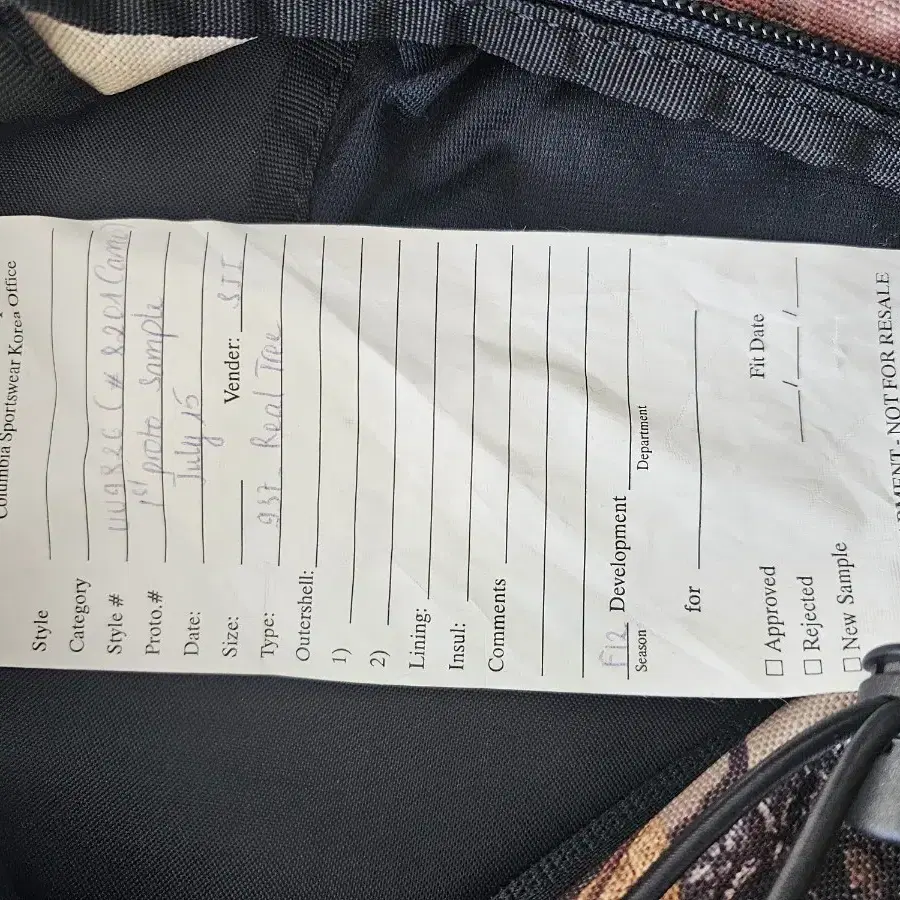 Columbia Sportswear Korea Office
Style
Category
Style # UU9826 (# 8201 Camo)
Proto.# 1st proto Sample
Date: July 15
Size: Vender: SJI
Type: 937 - Real Tree
Outershell:
1)
2)
Lining:
Insul:
Comments
F12 Development
Season Department
for
☐ Approved Fit Date
☐ Rejected / /
☐ New Sample
NOT FOR RESALE